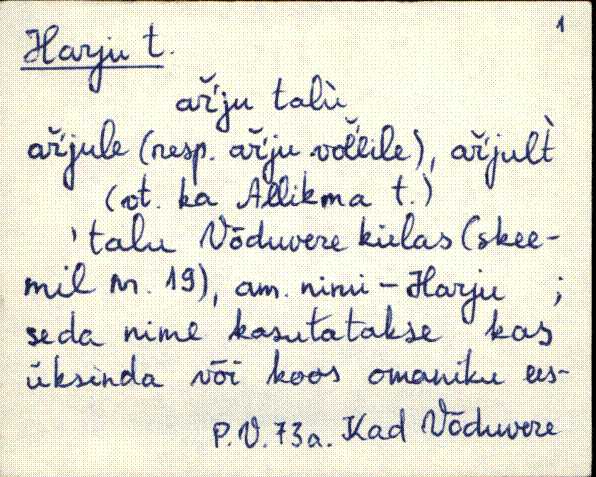 1
Harju t.
aŕ̆ju talù
aŕ̆jule (resp. aŕ̆ju voľ̆lile), aŕ̆jult̀
(vt. ka Allikma t.)
'talu Võduvere külas (skee-
mil nr. 19), am. nimi – Harju ;
seda nime kasutatakse kas
üksinda või koos omaniku ees-
P.V. 73a. Kad Võduvere